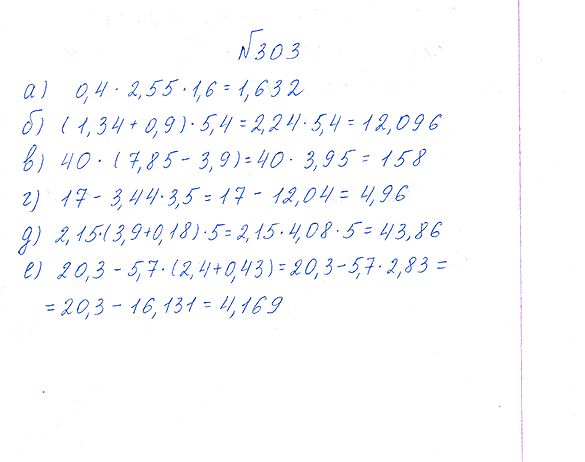 №303
а) 0,4 · 2,55 · 1,6 = 1,632
б) (1,34 + 0,9) · 5,4 = 2,24 · 5,4 = 12,096
в) 40 · (7,85 - 3,9) = 40 · 3,95 = 158
г) 17 - 3,44 · 3,5 = 17 - 12,04 = 4,96
д) 2,15 · (3,9 + 0,18) · 5 = 2,15 · 4,08 · 5 = 43,86
е) 20,3 - 5,7 · (2,4 + 0,43) = 20,3 - 5,7 · 2,83 =
= 20,3 - 16,131 = 4,169